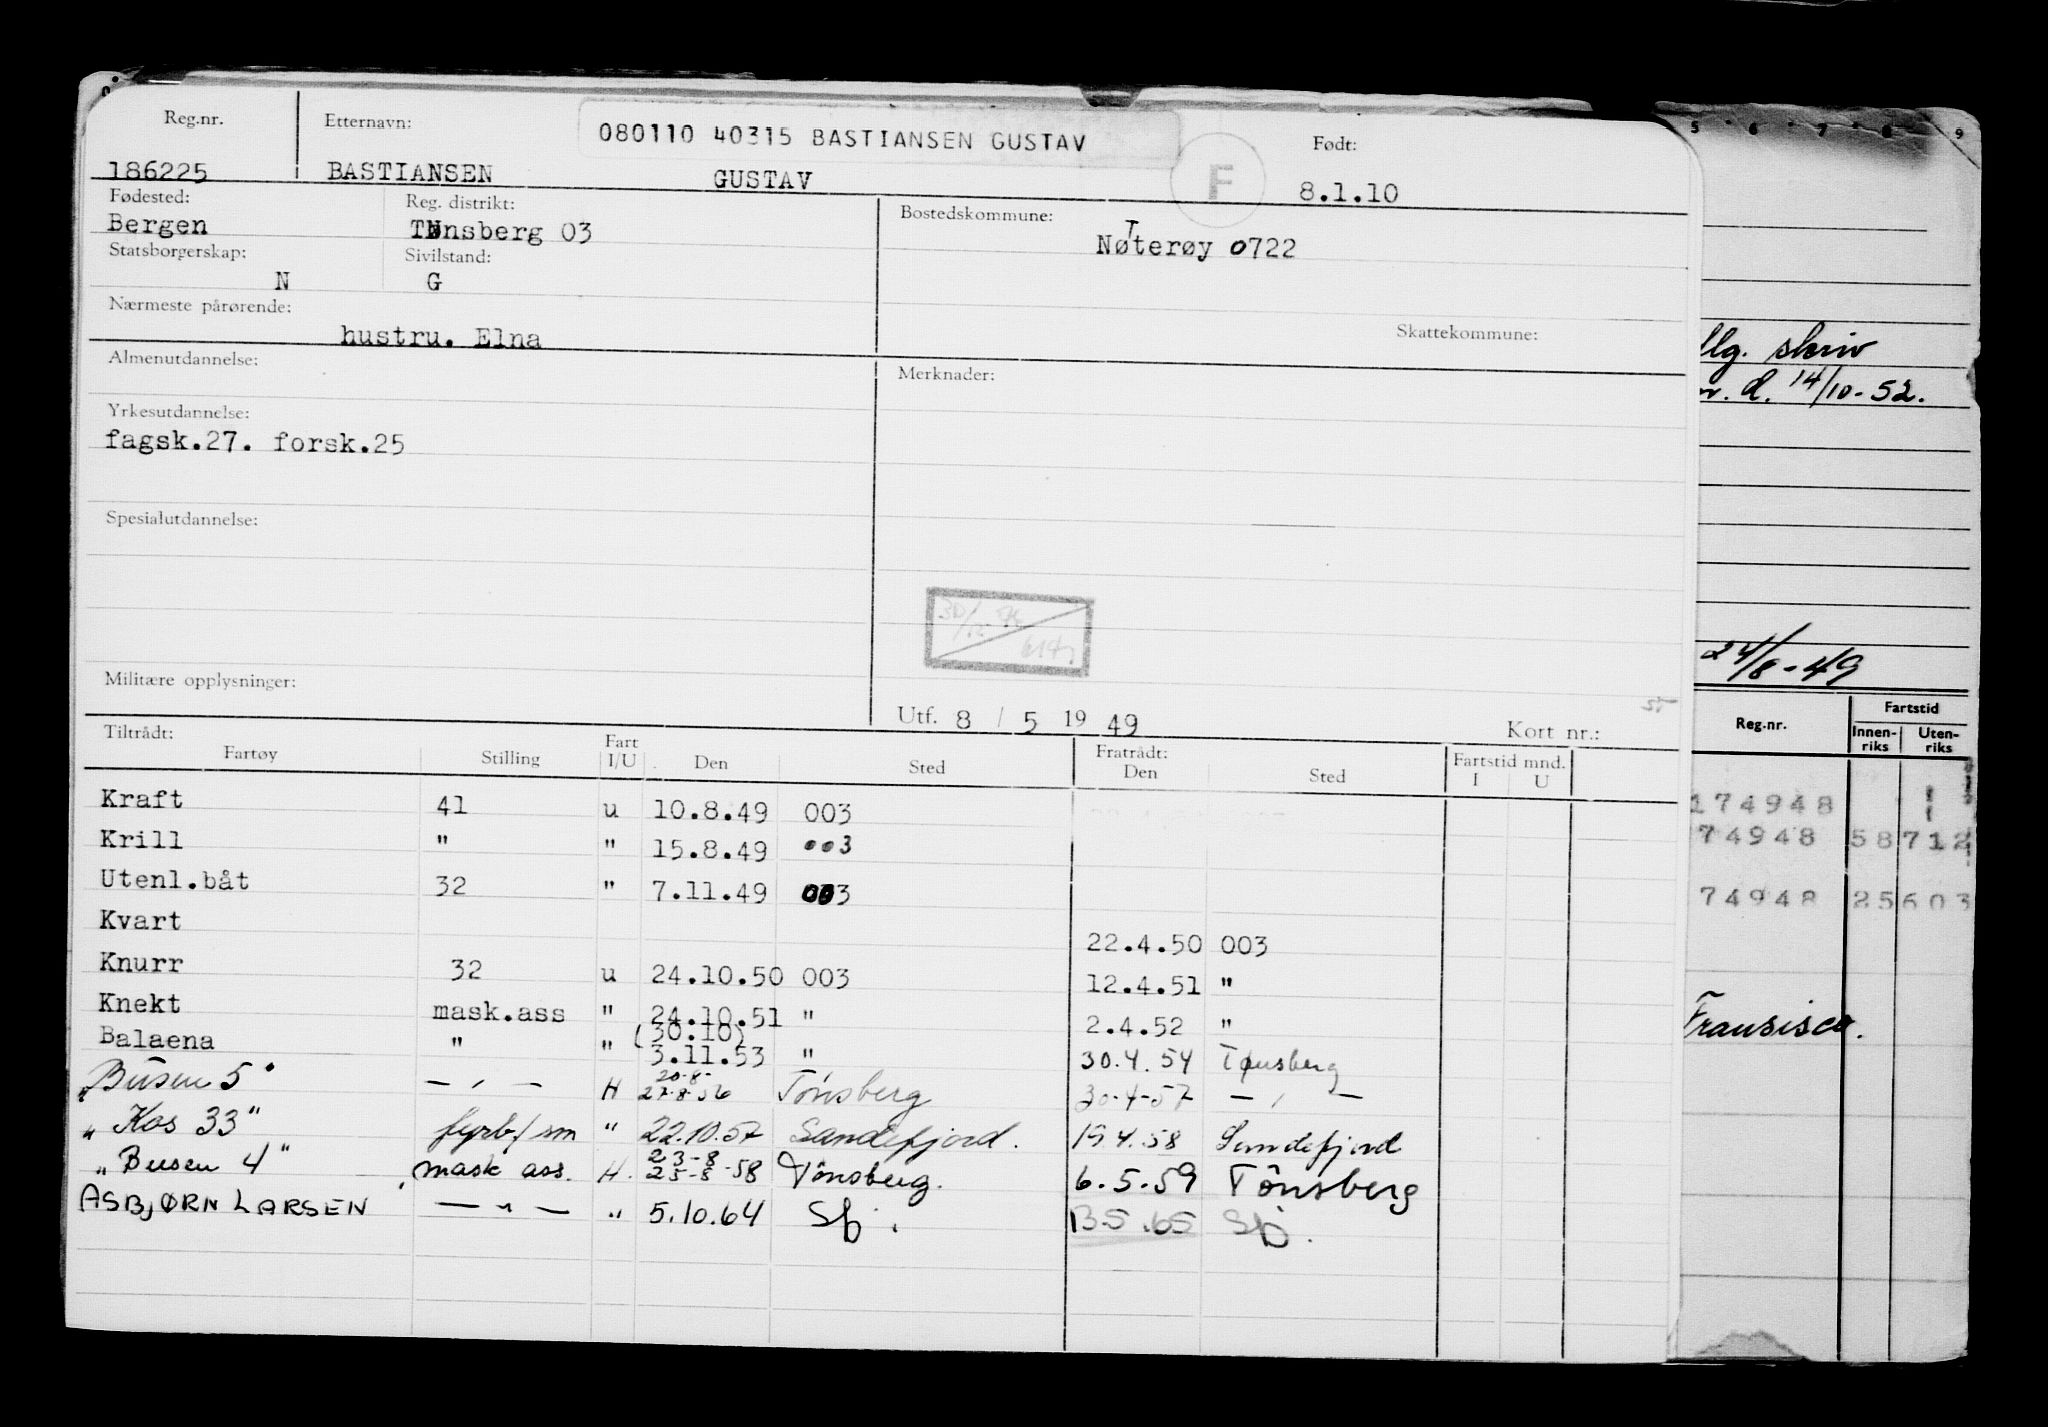 Reg.nr. Etternavn: 080110 40315 BASTIANSEN GUSTAV Født:
186225 BASTIANSEN GUSTAV F 8.1.10
Fødested: Reg. distrikt: Bostedskommune:
Bergen Tønsberg 03 Nøtterøy 0722
Statsborgerskap: Sivilstand:
N G
Nærmeste pårørende: Skattekommune:
hustru. Elna
Almenutdannelse: Merknader:
Yrkesutdannelse:
fagsk.27. forsk.25
Spesialutdannelse:
Militære opplysninger:
Utf. 8 / 5 19 49 Kort nr.:
Tiltrådt: Fart Fratrådt: Fartstid mnd.
Fartøy Stilling I/U Den Sted Den Sted I U
Kraft 41 u 10.8.49 003
Krill " " 15.8.49 003
Utenl.båt 32 " 7.11.49 003
Kvart 22.4.50 003
Knurr 32 u 24.10.50 003 12.4.51 "
Knekt mask.ass " 24.10.51 " 2.4.52 "
(30.10)
Balaena " " 3.11.53 " 30.4.54 Tønsberg
20-8-
"Busen 5" — " — H 27-8-56 Tönsberg 30-4-57 — " —
"Kos 33" fyrb/sm " 22.10.57 Sandefjord. 19.4.58 Sandefjord
23-8
"Busen 4" mask ass. H. 25-8-58 Tönsberg. 6.5.59 Tönsberg
ASBJØRN LARSEN — " — " 5.10.64 Sfj. 13.5.65 Sfj.
5 6 7 8 9
skriv
d. 14/10-52.
24/8-49
Reg.nr. Fartstid
Innen-riks Uten-riks
174948
74948 58 712
74948 25 603
Fransisco.